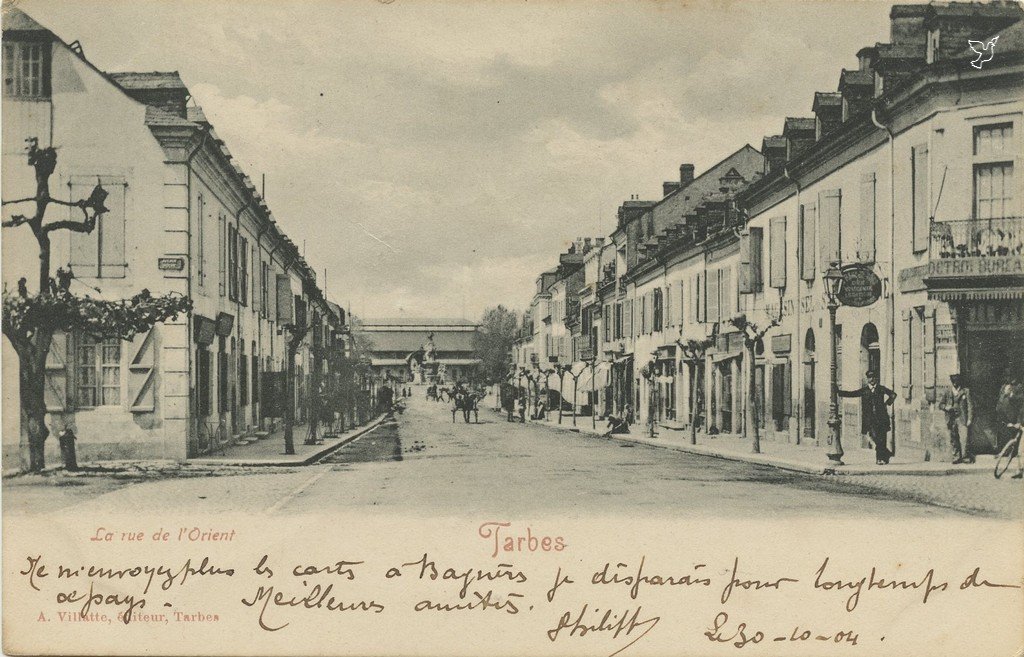 OCTROI BUREA
La rue de l'Orient
Tarbes
Ne m'envoyez plus les carts à Bagnères je disparais pour longtemps de
ce pays. Meilleures amitiés.
A. Villatte, éditeur, Tarbes
Le 30-10-04.